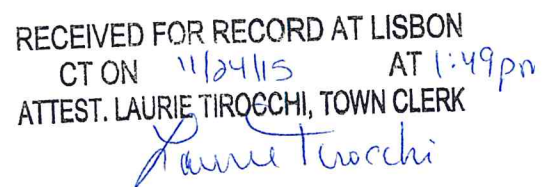 RECEIVED FOR RECORD AT LISBON
CT ON 11/24/15 AT 1:49pm
ATTEST. LAURIE TIROCCHI, TOWN CLERK
Laurie Tirocchi